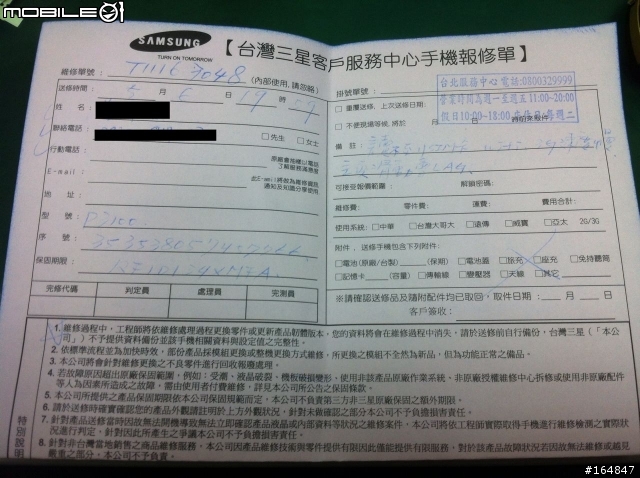 Mobile01
SAMSUNG
TURN ON TOMORROW
【台灣三星客戶服務中心手機報修單】
維修單號：
(內部使用,請忽略)
送修時間： 5 月 6 日 19 時
姓名：
聯絡電話： □先生 □女士
行動電話：
原廠會抽樣以電話
了解服務滿意度
E-mail：
此E-mail將做為維修資訊
通知及知識分享使用
地址：
型號： P7100
序號：
保固期限：
完修代碼 判定員 處理員 完測員
掛號單號：
台北服務中心電話:0800329999
營業時間為週一至週五11:00~20:00
假日10:00~18:00
□重覆送修，上次送修日期：
□不便現場等候，將於 月 日 時前來取件
備註：
可接受報價範圍： 解鎖密碼：
維修費： 零件費： 運費： 費用合計：
使用系統：□中華 □台灣大哥大 □遠傳 □威寶 □亞太 2G/3G
附件，送修手機包含下列附件：
□電池(原廠/台製) (保期) □電池蓋 □旅充 □座充 □免持聽筒
□記憶卡 (容量) □傳輸線 □變壓器 □天線 □其它
※請確認送修品及隨附配件均已取回，取件日期： 月 日
客戶簽收：
特別說明
1. 維修過程中，工程師將依維修處理過程更換零件或更新產品韌體版本，您的資料將會在維修過程中消失，請於送修前自行備份，台灣三星(「本公
司」)不予提供資料備份並該手機相關資料與設定值之完整性。
2. 依標準流程並為加快時效，部份產品採模組更換或整機更換方式維修，所更換之模組不全然為新品，但為功能正常之備品。
3. 本公司將會針對維修更換之不良零件進行回收報廢處理。
4. 若故障原因超出原廠保固範圍，例如：受潮、液晶破裂、機板破損變形、使用非該產品原廠作業系統、非原廠授權維修中心拆修或使用非原廠配件
等人為因素所造成之故障，需由使用者付費維修，詳見本公司所公告之保固條款。
5. 本公司所提供之產品保固期限依本公司保固規範定，本公司不負責第三方非三星原廠保固之額外期限。
6. 請於送修時確實確認您的產品外觀請註明於上方外觀狀況，針對未做確認之部分本公司不予負擔損害責任。
7. 針對產品送修當時因故無法開機導致無法立即確認產品液晶或內部資料等狀況之維修案件，本公司將依工程師實際取得手機進行維修檢測之實際狀
況進行判定，針對因此所產生之爭議本公司不予負擔損害責任。
8. 針對非台灣當地銷售之商品維修服務，本公司因產品維修技術與零件提供有限因此僅能提供有限服務，對於該產品故障狀況若因故無法維修或越見
嚴重之部分，本公司不予負責。
#164847